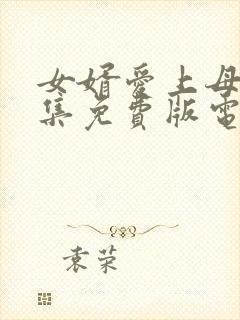 女婿爱上母
集免費版電
袁荣